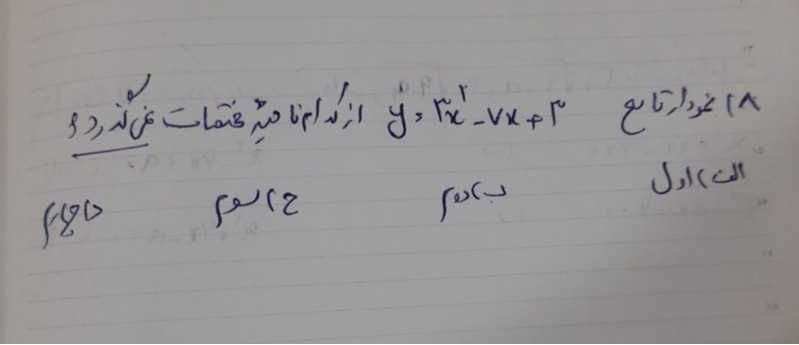 ۱۸) نمودار تابع y = ۳x² - ۷x + ۳ از کدام ناحیهٔ مختصات نمی‌گذرد؟
الف) اول ب) دوم ج) سوم د) چهارم